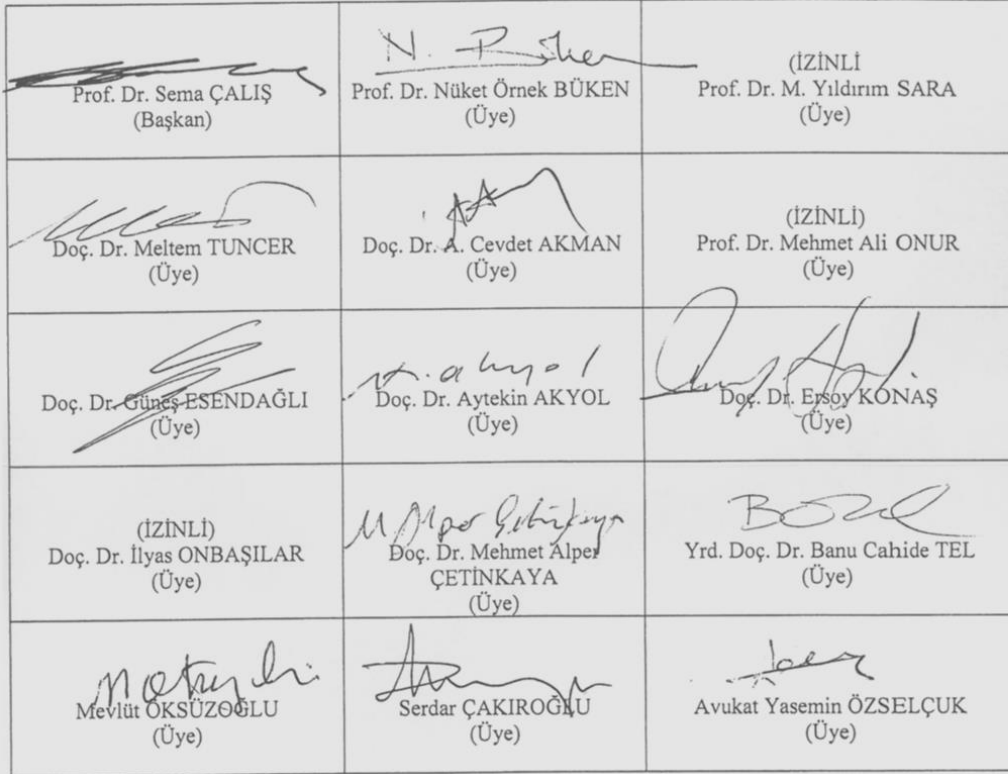 Prof. Dr. Sema ÇALIŞ
(Başkan)
N. Büken
Prof. Dr. Nüket Örnek BÜKEN
(Üye)
(İZİNLİ
Prof. Dr. M. Yıldırım SARA
(Üye)
Doç. Dr. Meltem TUNCER
(Üye)
Doç. Dr. A. Cevdet AKMAN
(Üye)
(İZİNLİ)
Prof. Dr. Mehmet Ali ONUR
(Üye)
Doç. Dr. Güneş ESENDAĞLI
(Üye)
Doç. Dr. Aytekin AKYOL
(Üye)
Doç. Dr. Ersoy KONAŞ
(Üye)
(İZİNLİ)
Doç. Dr. İlyas ONBAŞILAR
(Üye)
M Alper Çetinkaya
Doç. Dr. Mehmet Alper
ÇETİNKAYA
(Üye)
Yrd. Doç. Dr. Banu Cahide TEL
(Üye)
Mevlüt ÖKSÜZOĞLU
(Üye)
Serdar ÇAKIROĞLU
(Üye)
Avukat Yasemin ÖZSELÇUK
(Üye)